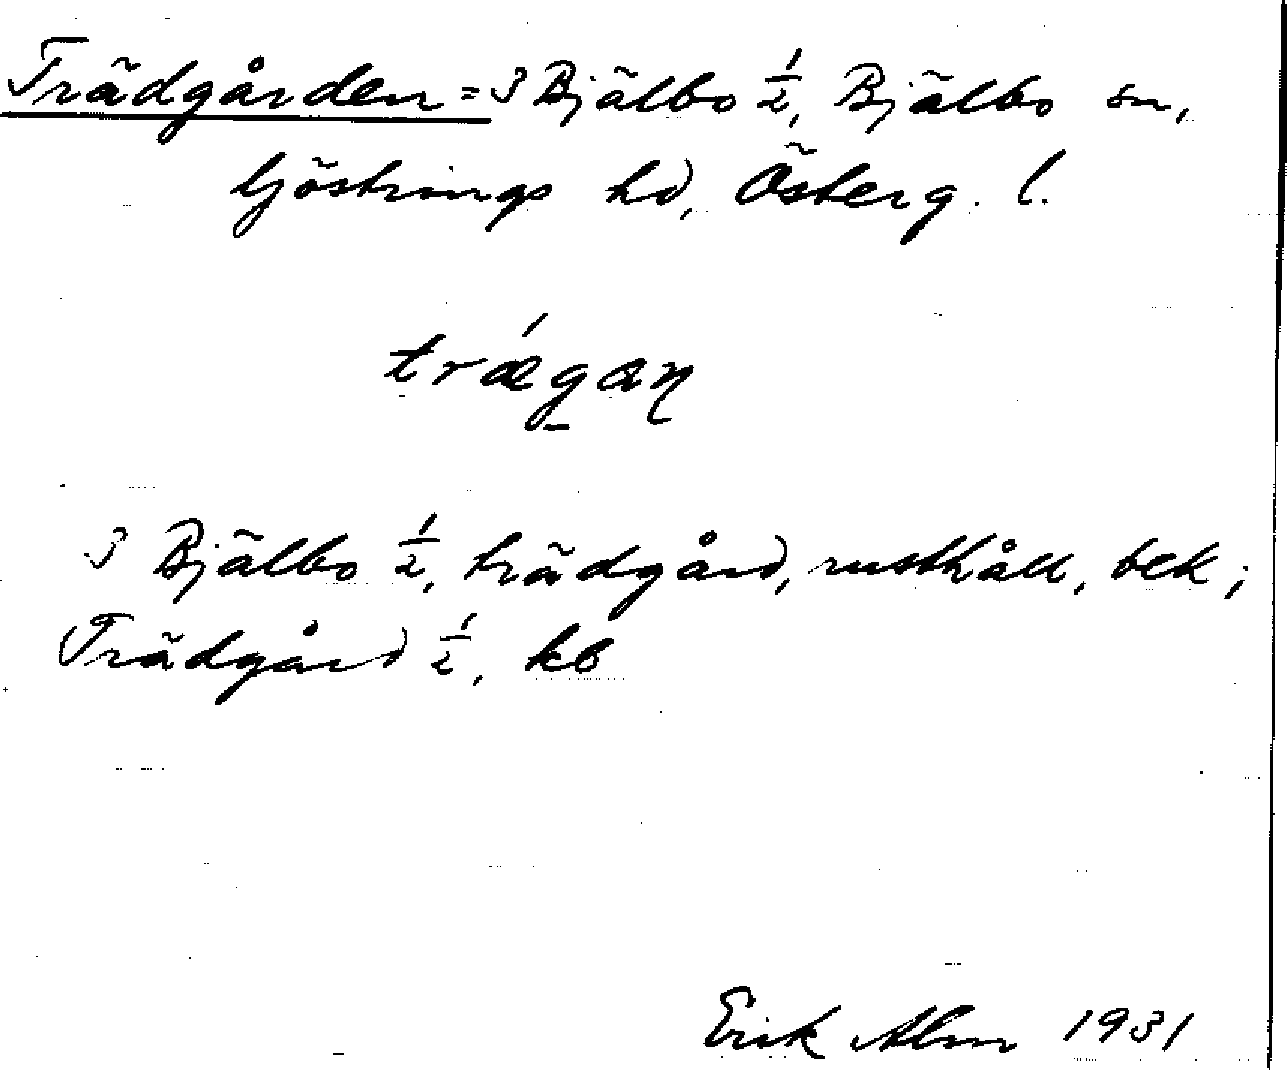 Trädgården = 3 Bjälbo 1/2, Bjälbo sn,
Göstrings hd, Österg. l.
trǽgan
3 Bjälbo 1/2, trädgård, rusthåll, bek;
Trädgård 1/2, kb
Erik Alm 1931